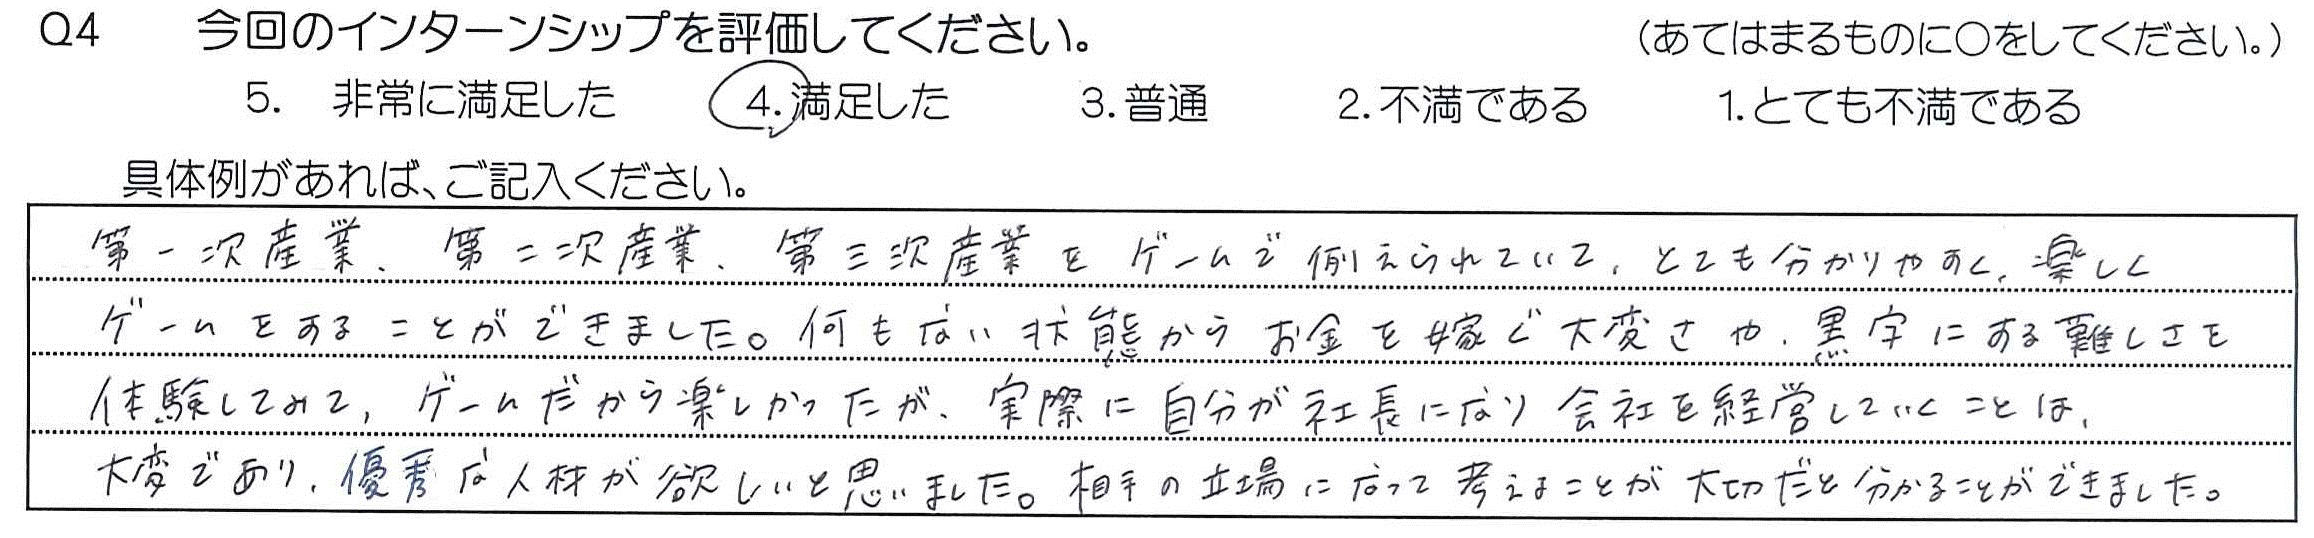 Q4 今回のインターンシップを評価してください。 (あてはまるものに○をしてください。)
5. 非常に満足した 4.満足した 3.普通 2.不満である 1.とても不満である
具体例があれば、ご記入ください。
第一次産業、第二次産業、第三次産業をゲームで例えられていて、とても分かりやすく、楽しく
ゲームをすることができました。何もない状態からお金を嫁ぐ大変さや、黒字にする難しさを
体験してみて、ゲームだから楽しかったが、実際に自分が社長になり会社を経営していくことは、
大変であり、優秀な人材が欲しいと思いました。相手の立場になって考えることが大切だと分かることができました。